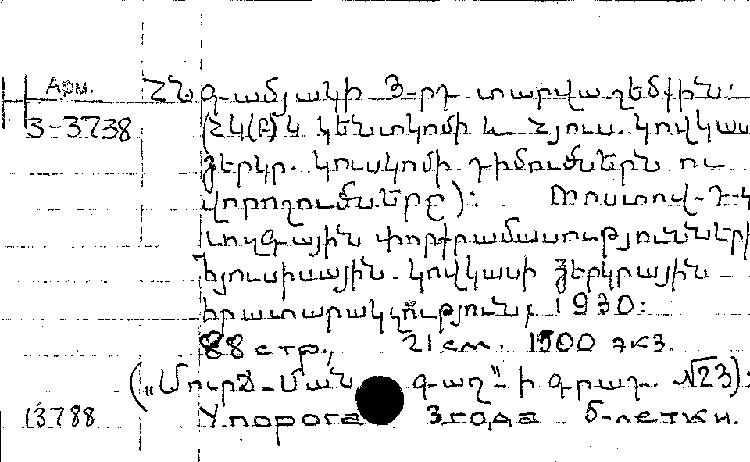 Арм. Հն գամյակի 3-րդ տարվա շեմքին:
3-3738 (ՀԿ(Բ)Կ կենտկոմի և Հյուս. կովկաս
յերկր. կուսկոմի դիմումներն ու
վորոշումները): Ռոստով-Դ-Կ
ազգային փոքրամասնությունների
հյուսիսային. կովկասի յերկրային
հրատարակչություն, 1930:
88 стр., 21 см. 1500 экз.
(„Մուրճ-Ման գաղ“-ի գրադ. №23):
13788 У порога 3 года 5-летки.